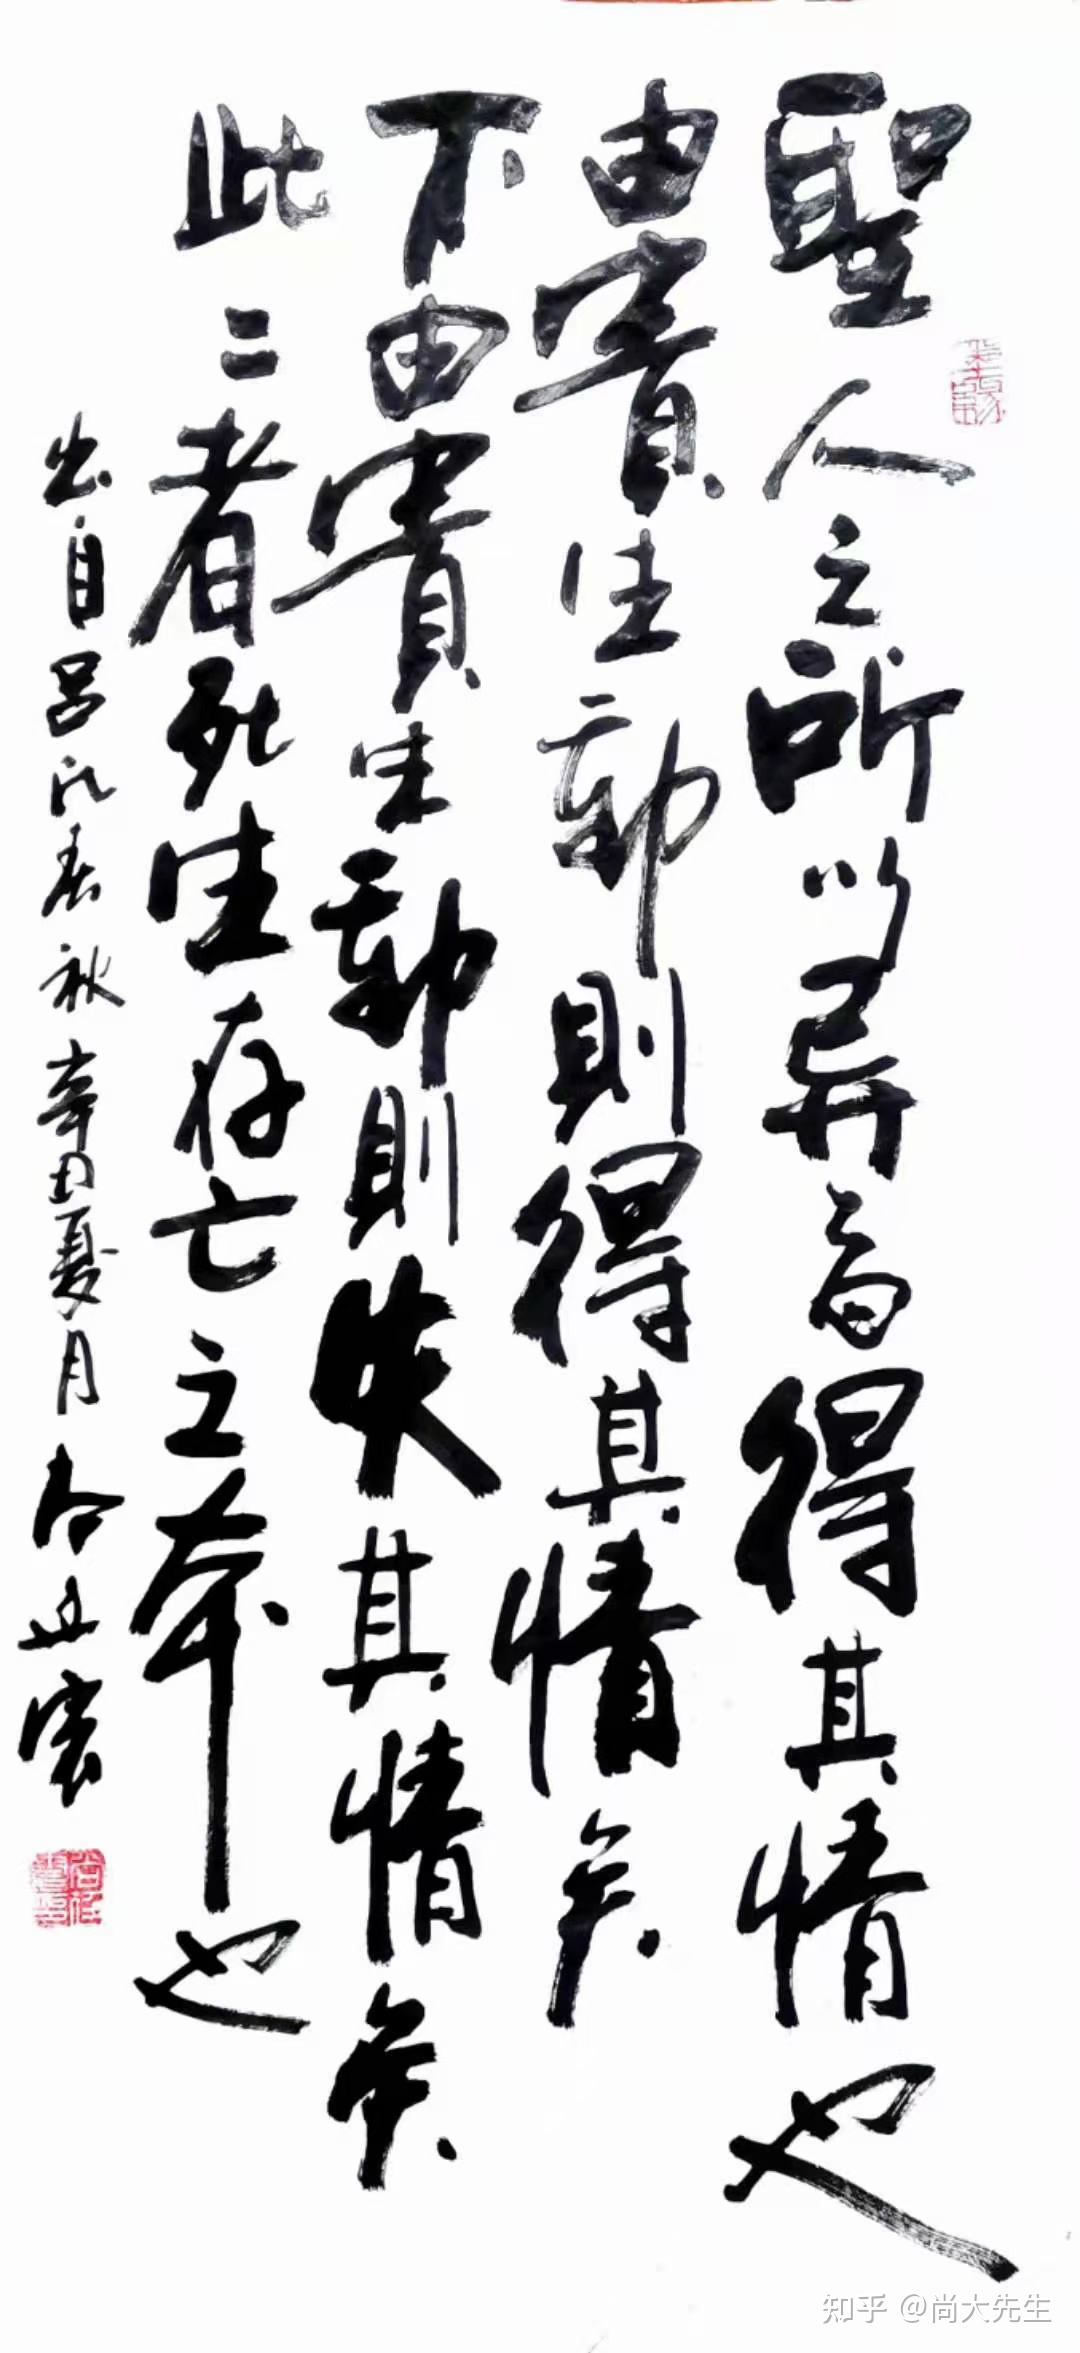 聖人之所以異者得其情也
由貴生動則得其情矣
不由貴生動則失其情矣
此二者死生存亡之本也
出自呂氏春秋辛丑夏月
知乎 @尚大先生